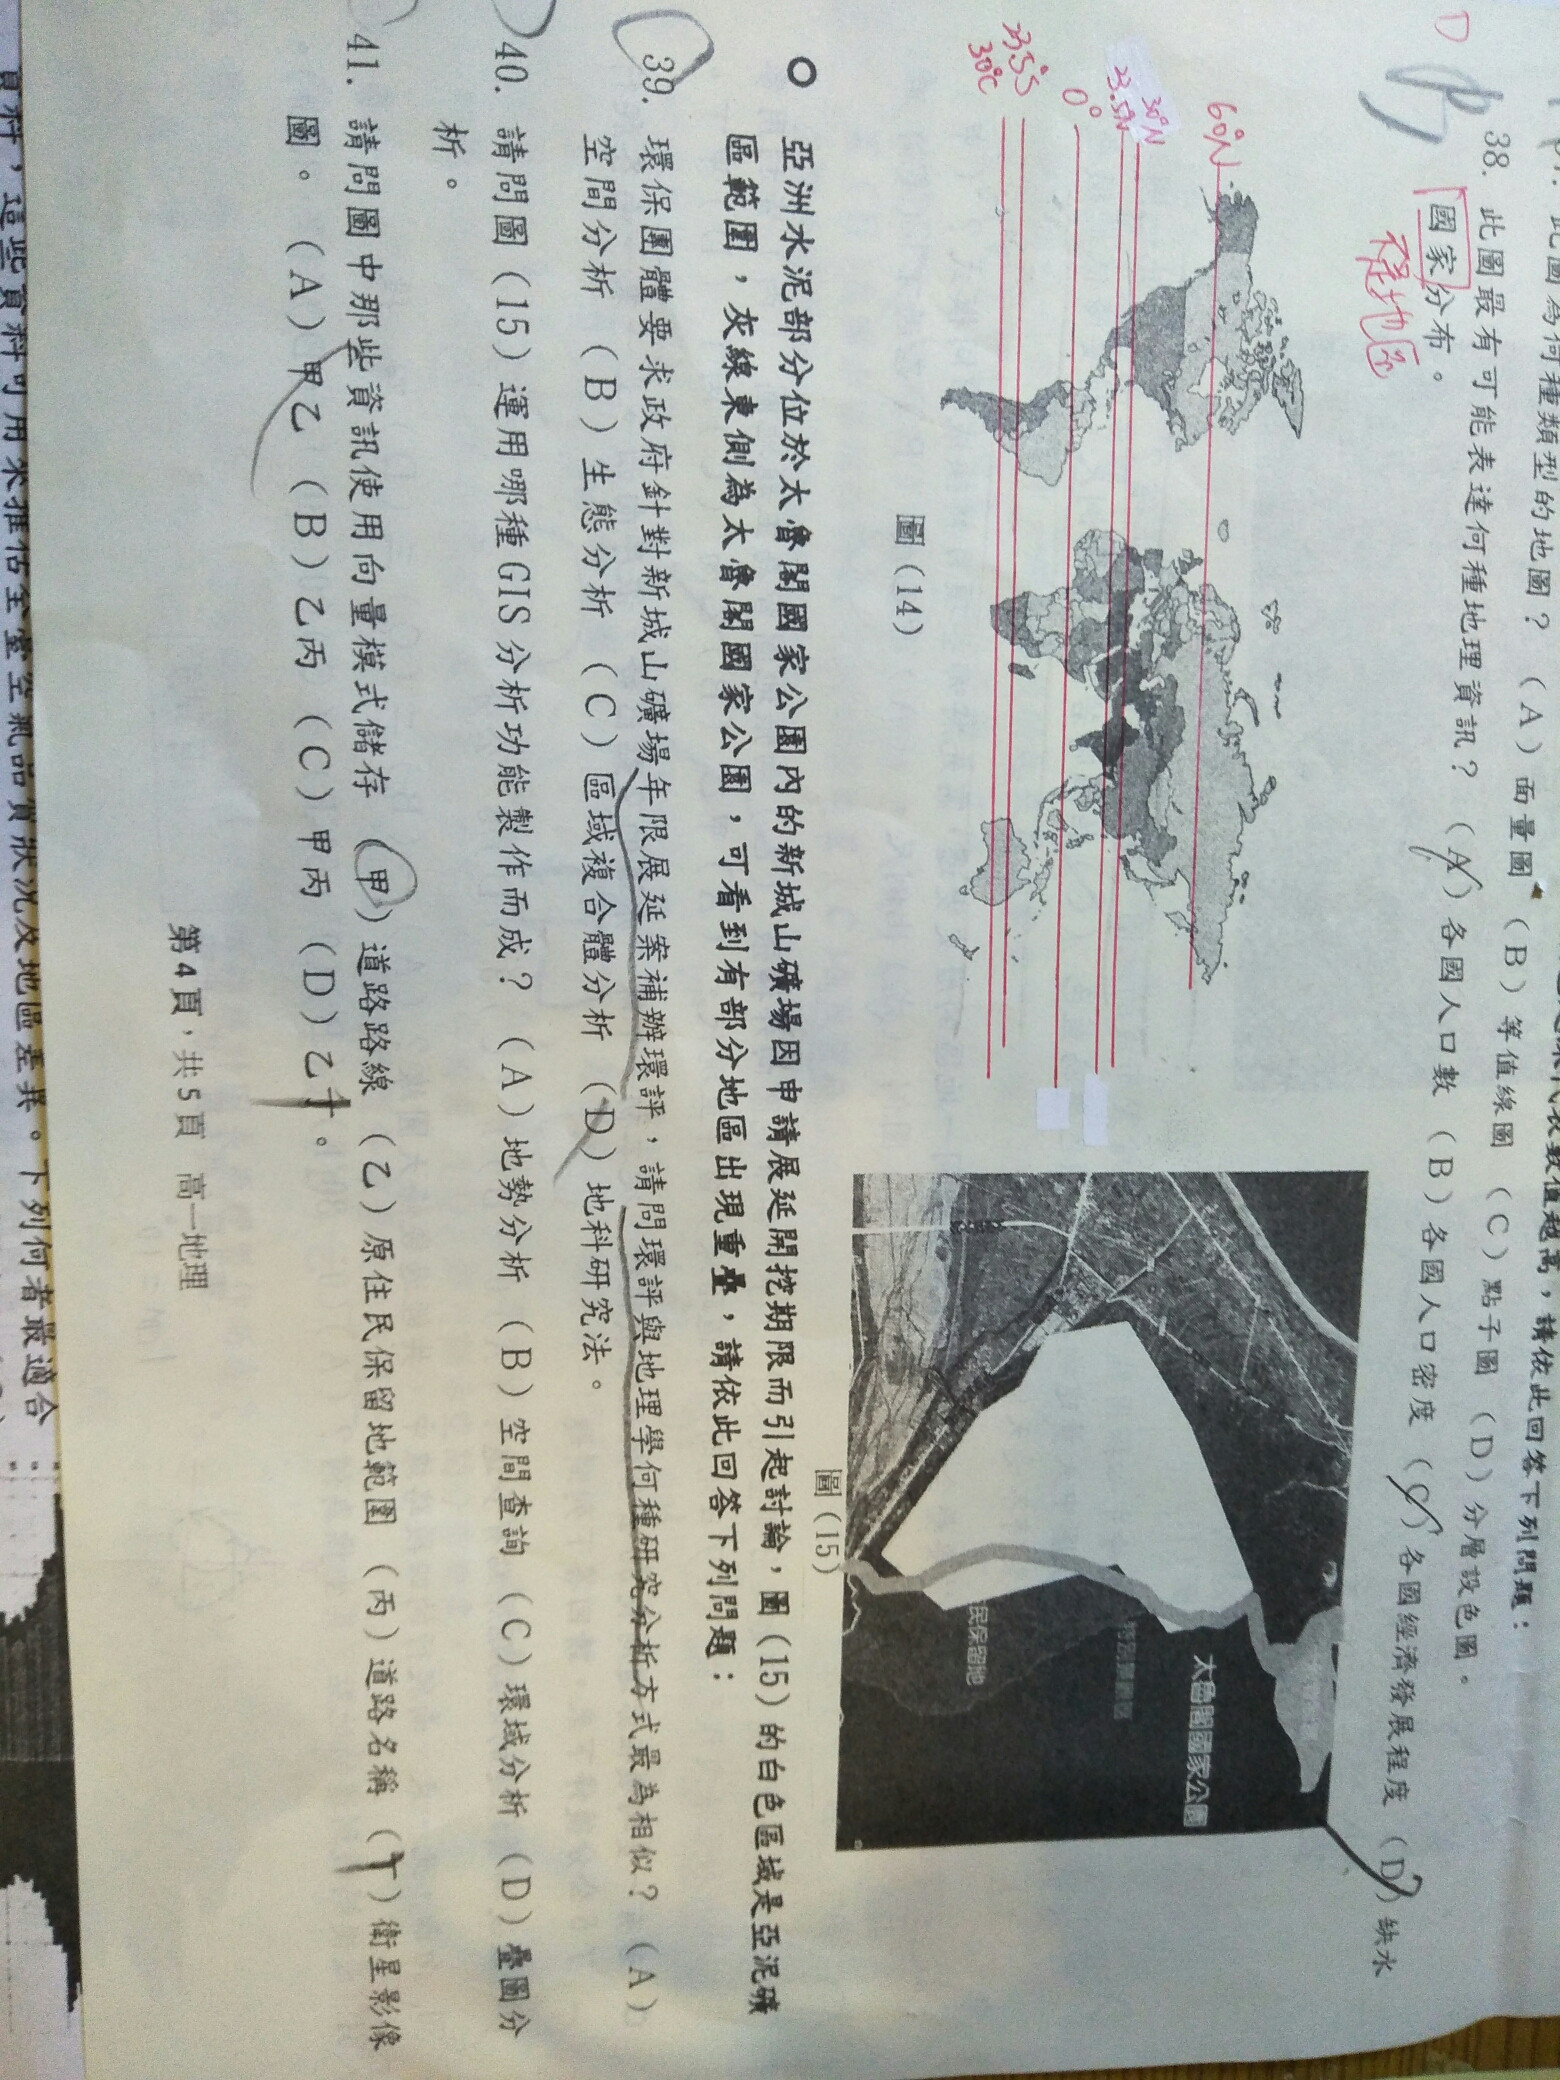 此圖為何種類型的地圖？（A）面量圖（B）等值線圖（C）點子圖（D）分層設色圖。
D
38. 此圖最有可能表達何種地理資訊？（A）各國人口數（B）各國人口密度（C）各國經濟發展程度（D）缺水
國家分布。
60°N
30°N
23.5°N
0°
23.5°S
30°C
圖（14）
太魯閣國家公園
特別景觀區
民保留地
圖（15）
亞洲水泥部分位於太魯閣國家公園內的新城山礦場因申請展延開挖期限而引起討論，圖（15）的白色區域是亞泥礦
區範圍，灰線東側為太魯閣國家公園，可看到有部分地區出現重疊，請依此回答下列問題：
39. 環保團體要求政府針對新城山礦場年限展延案補辦環評，請問環評與地理學何種研究分析方式最為相似？（A）
空間分析（B）生態分析（C）區域複合體分析（D）地科研究法。
40. 請問圖（15）運用哪種GIS分析功能製作而成？（A）地勢分析（B）空間查詢（C）環域分析（D）疊圖分
析。
41. 請問圖中那些資訊使用向量模式儲存（甲）道路路線（乙）原住民保留地範圍（丙）道路名稱（丁）衛星影像
圖。（A）甲乙（B）乙丙（C）甲丙（D）乙丁。
第4頁，共5頁 高一地理
資料，這些資料可用來推估全臺空氣品質狀況及地區差異。下列何者最適合